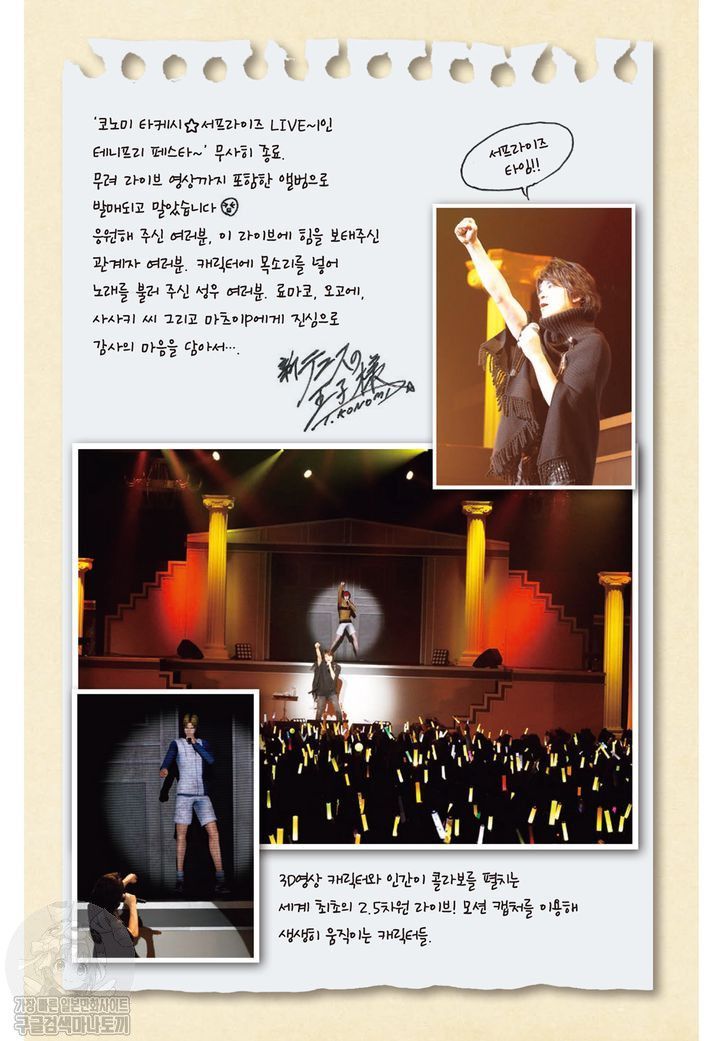 '코노미 타케시☆서프라이즈 LIVE~1인
테니프리 페스타~' 무사히 종료.
무려 라이브 영상까지 포함한 앨범으로
발매되고 말았습니다
응원해 주신 여러분, 이 라이브에 힘을 보태주신
관계자 여러분. 캐릭터에 목소리를 넣어
노래를 불러 주신 성우 여러분. 료마코, 오고에,
사사키 씨 그리고 마츠이P에게 진심으로
감사의 마음을 담아서….
新テニスの
王子様
T.KONOMI
서프라이즈
타임!!
3D영상 캐릭터와 인간이 콜라보를 펼치는
세계 최초의 2.5차원 라이브! 모션 캡처를 이용해
생생히 움직이는 캐릭터들.
가장 빠른 일본만화사이트
구글검색마나토끼